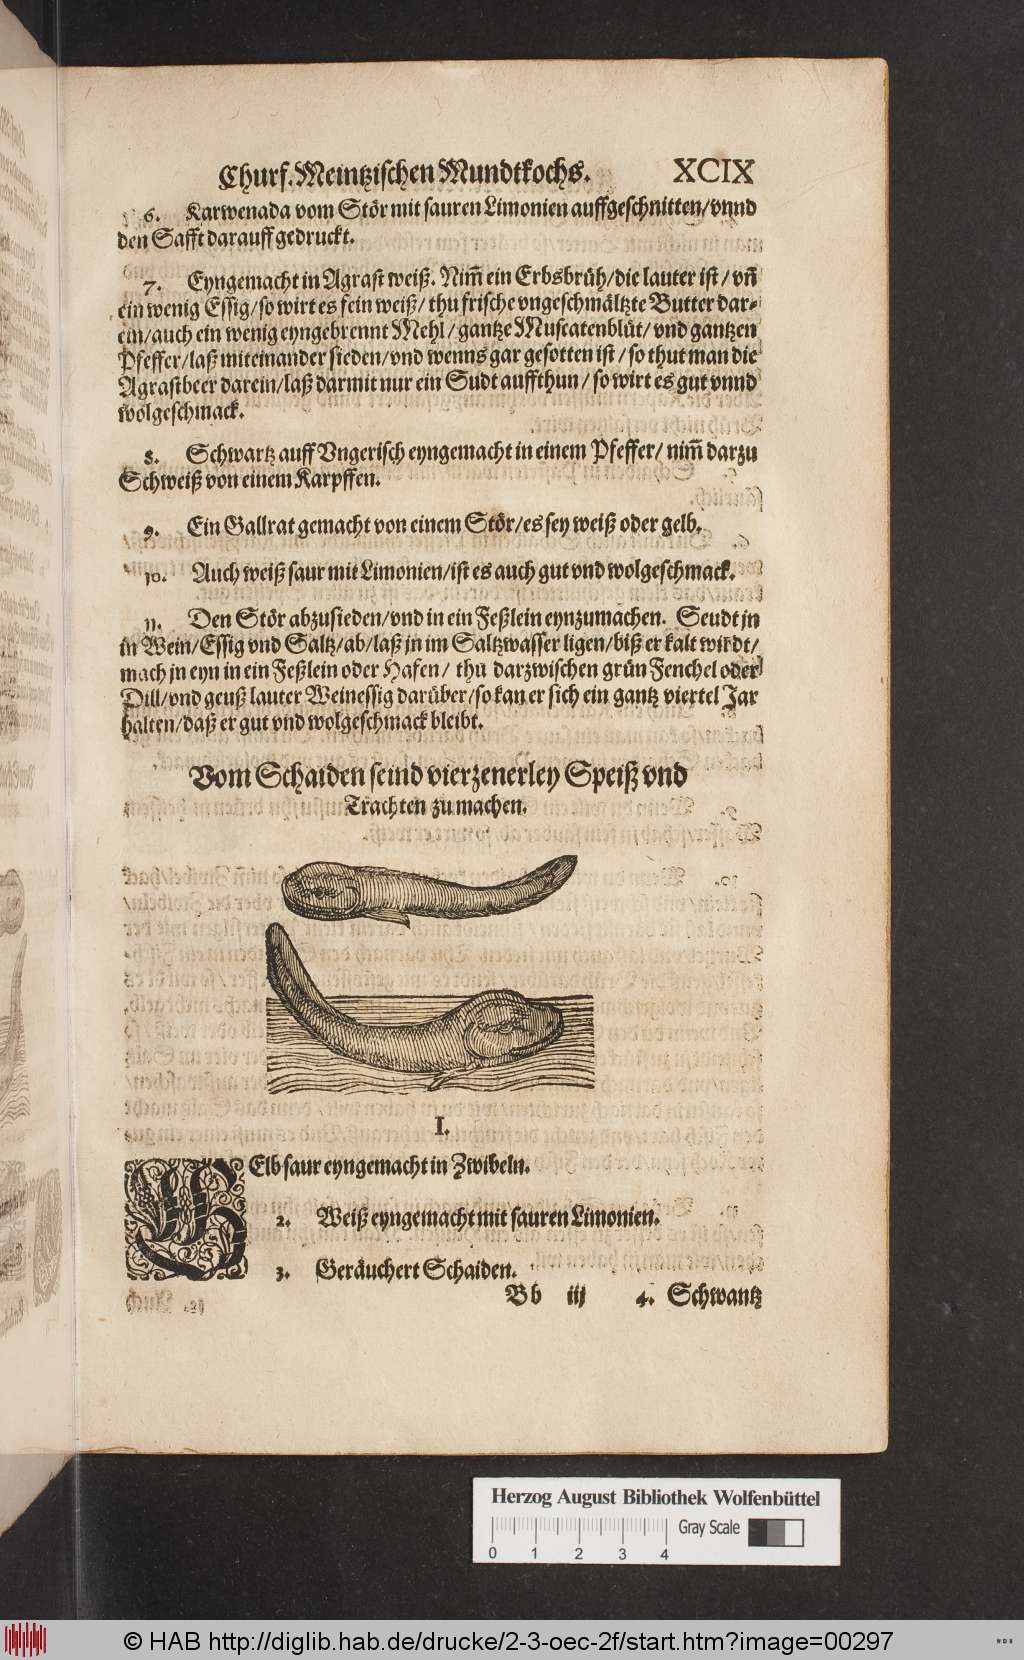 Churf. Meintzischen Mundtkochs. XCIX
6. Karwenada vom Stör mit sauren Limonien auffgeschnitten/vnnd
den Safft darauff gedruckt.
7. Eyngemacht in Agrast weiß. Nim̃ ein Erbsbrüh/die lauter ist/vn̄
ein wenig Essig/so wirt es fein weiß/thu frische vngeschmältzte Butter dar-
ein/auch ein wenig eyngebrennt Mehl/gantze Muscatenblüt/vnd gantzen
Pfeffer/laß miteinander sieden/vnd wenns gar gesotten ist/so thut man die
Agrastbeer darein/laß darmit nur ein Sudt auffthun/so wirt es gut vnnd
wolgeschmack.
8. Schwartz auff Vngerisch eyngemacht in einem Pfeffer/nim̃ darzu
Schweiß von einem Karpffen.
9. Ein Gallrat gemacht von einem Stör/es sey weiß oder gelb.
10. Auch weiß saur mit Limonien/ist es auch gut vnd wolgeschmack.
11. Den Stör abzusieden/vnd in ein Feßlein eynzumachen. Seudt jn
in Wein/Essig vnd Saltz/ab/laß jn im Saltzwasser ligen/biß er kalt wirdt/
mach jn eyn in ein Feßlein oder Hafen/thu darzwischen grün Fenchel oder
Dill/vnd geuß lauter Weinessig darüber/so kan er sich ein gantz viertel Jar
halten/daß er gut vnd wolgeschmack bleibt.
Vom Schaiden seind vierzenerley Speiß vnd
Trachten zu machen.
I.
GElb saur eyngemacht in Zwibeln.
2. Weiß eyngemacht mit sauren Limonien.
3. Geräuchert Schaiden.
Bb iij 4. Schwantz
Herzog August Bibliothek Wolfenbüttel
Gray Scale
0 1 2 3 4
© HAB http://diglib.hab.de/drucke/2-3-oec-2f/start.htm?image=00297